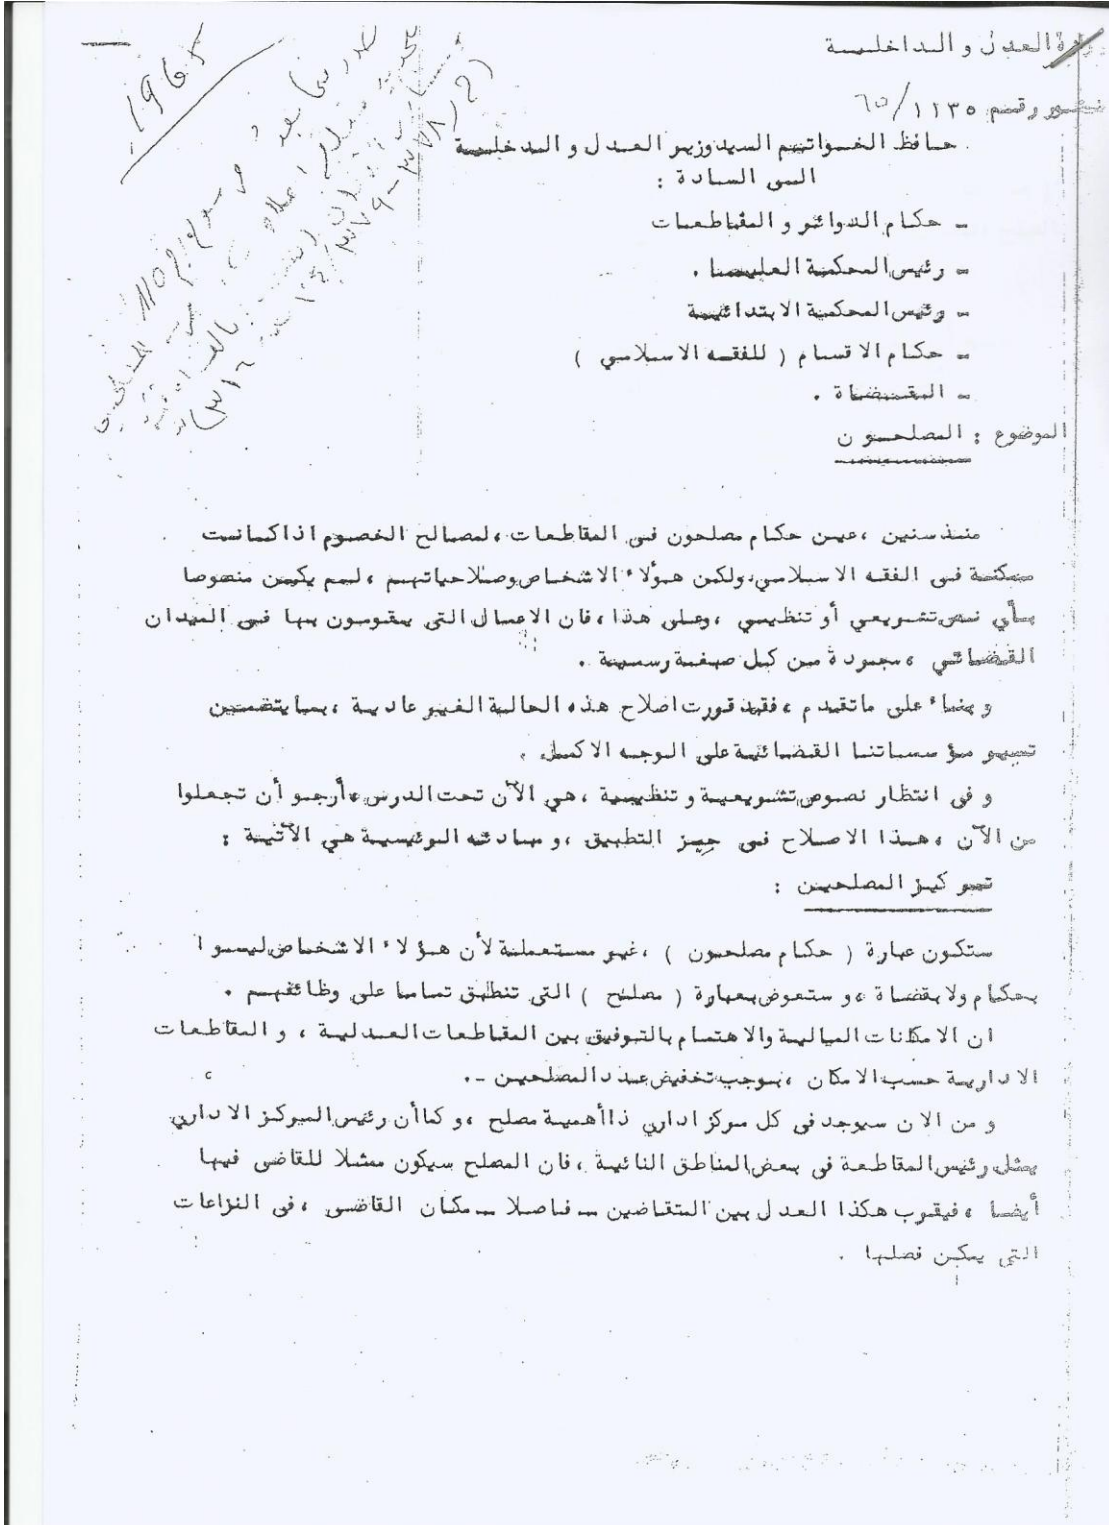 وزارة العدل و الداخلية
منشور رقم ١١٣٥/٦٥
حافظ الخواتم السيد وزير العدل و الدخلية
الى السادة :
- حكام الدوائر و المقاطعات
- رئيس المحكمة العليا .
- رئيس المحكمة الابتدائية
- حكام الاقسام ( للفقه الاسلامي )
- القضاة .
الموضوع : المصلحون
1965
منذ سنين ،عين حكام مصلحون فى المقاطعات ،لمصالح الخصوم اذا كانت
ممكنة فى الفقه الاسلامي،ولكن هؤلاء الاشخاص وصلاحياتهم ،لم يكن منصوصا
بأي نص تشريعي أو تنظيمي ،وعلى هذا ،فان الاعمال التى يقومون بها فى الميدان
القضائي ،مجردة من كل صبغة رسمية .
و بناء على ماتقدم ،فقد قررت اصلاح هذه الحالة الغير عادية ،بما يتضمن
تسيير مؤسساتنا القضائية على الوجه الاكمل .
و فى انتظار نصوص تشريعية و تنظيمية ،هي الآن تحت الدرس،أرجو أن تجعلوا
من الآن ،هذا الاصلاح فى حيز التطبيق ،و مبادئه الرئيسية هي الآتية :
تمركيز المصلحين :
ستكون عبارة ( حكام مصلحون ) ،غير مستعملة لأن هؤلاء الاشخاص ليسوا
بحكام ولا بقضاة ،و ستعوض بعبارة ( مصلح ) التى تنطبق تماما على وظائفهم .
ان الامكانات المالية والاهتمام بالتوفيق بين المقاطعات العدلية ، و المقاطعات
الادارية حسب الامكان ،يوجب تخفيض عدد المصلحين -.
و من الان سيوجد فى كل مركز اداري ذا أهمية مصلح ،و كما أن رئيس المركز الاداري
يمثل رئيس المقاطعة فى بعض المناطق النائية ،فان المصلح سيكون ممثلا للقاضى فيها
أيضا ،فيقرب هكذا العدل بين المتقاضين - فاصلا - مكان القاضى ،فى النزاعات
التى يمكن فصلها .